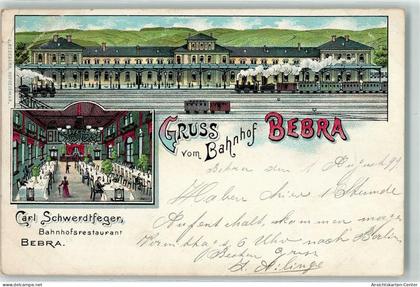 GRUSS
vom Bahnhof BEBRA
Carl Schwerdtfeger,
Bahnhofsrestaurant
BEBRA.
Bebra den 1 August 99
Haben hier 1 Stunde
Aufenthalt, kommen morgen
6 Uhr nach Berlin